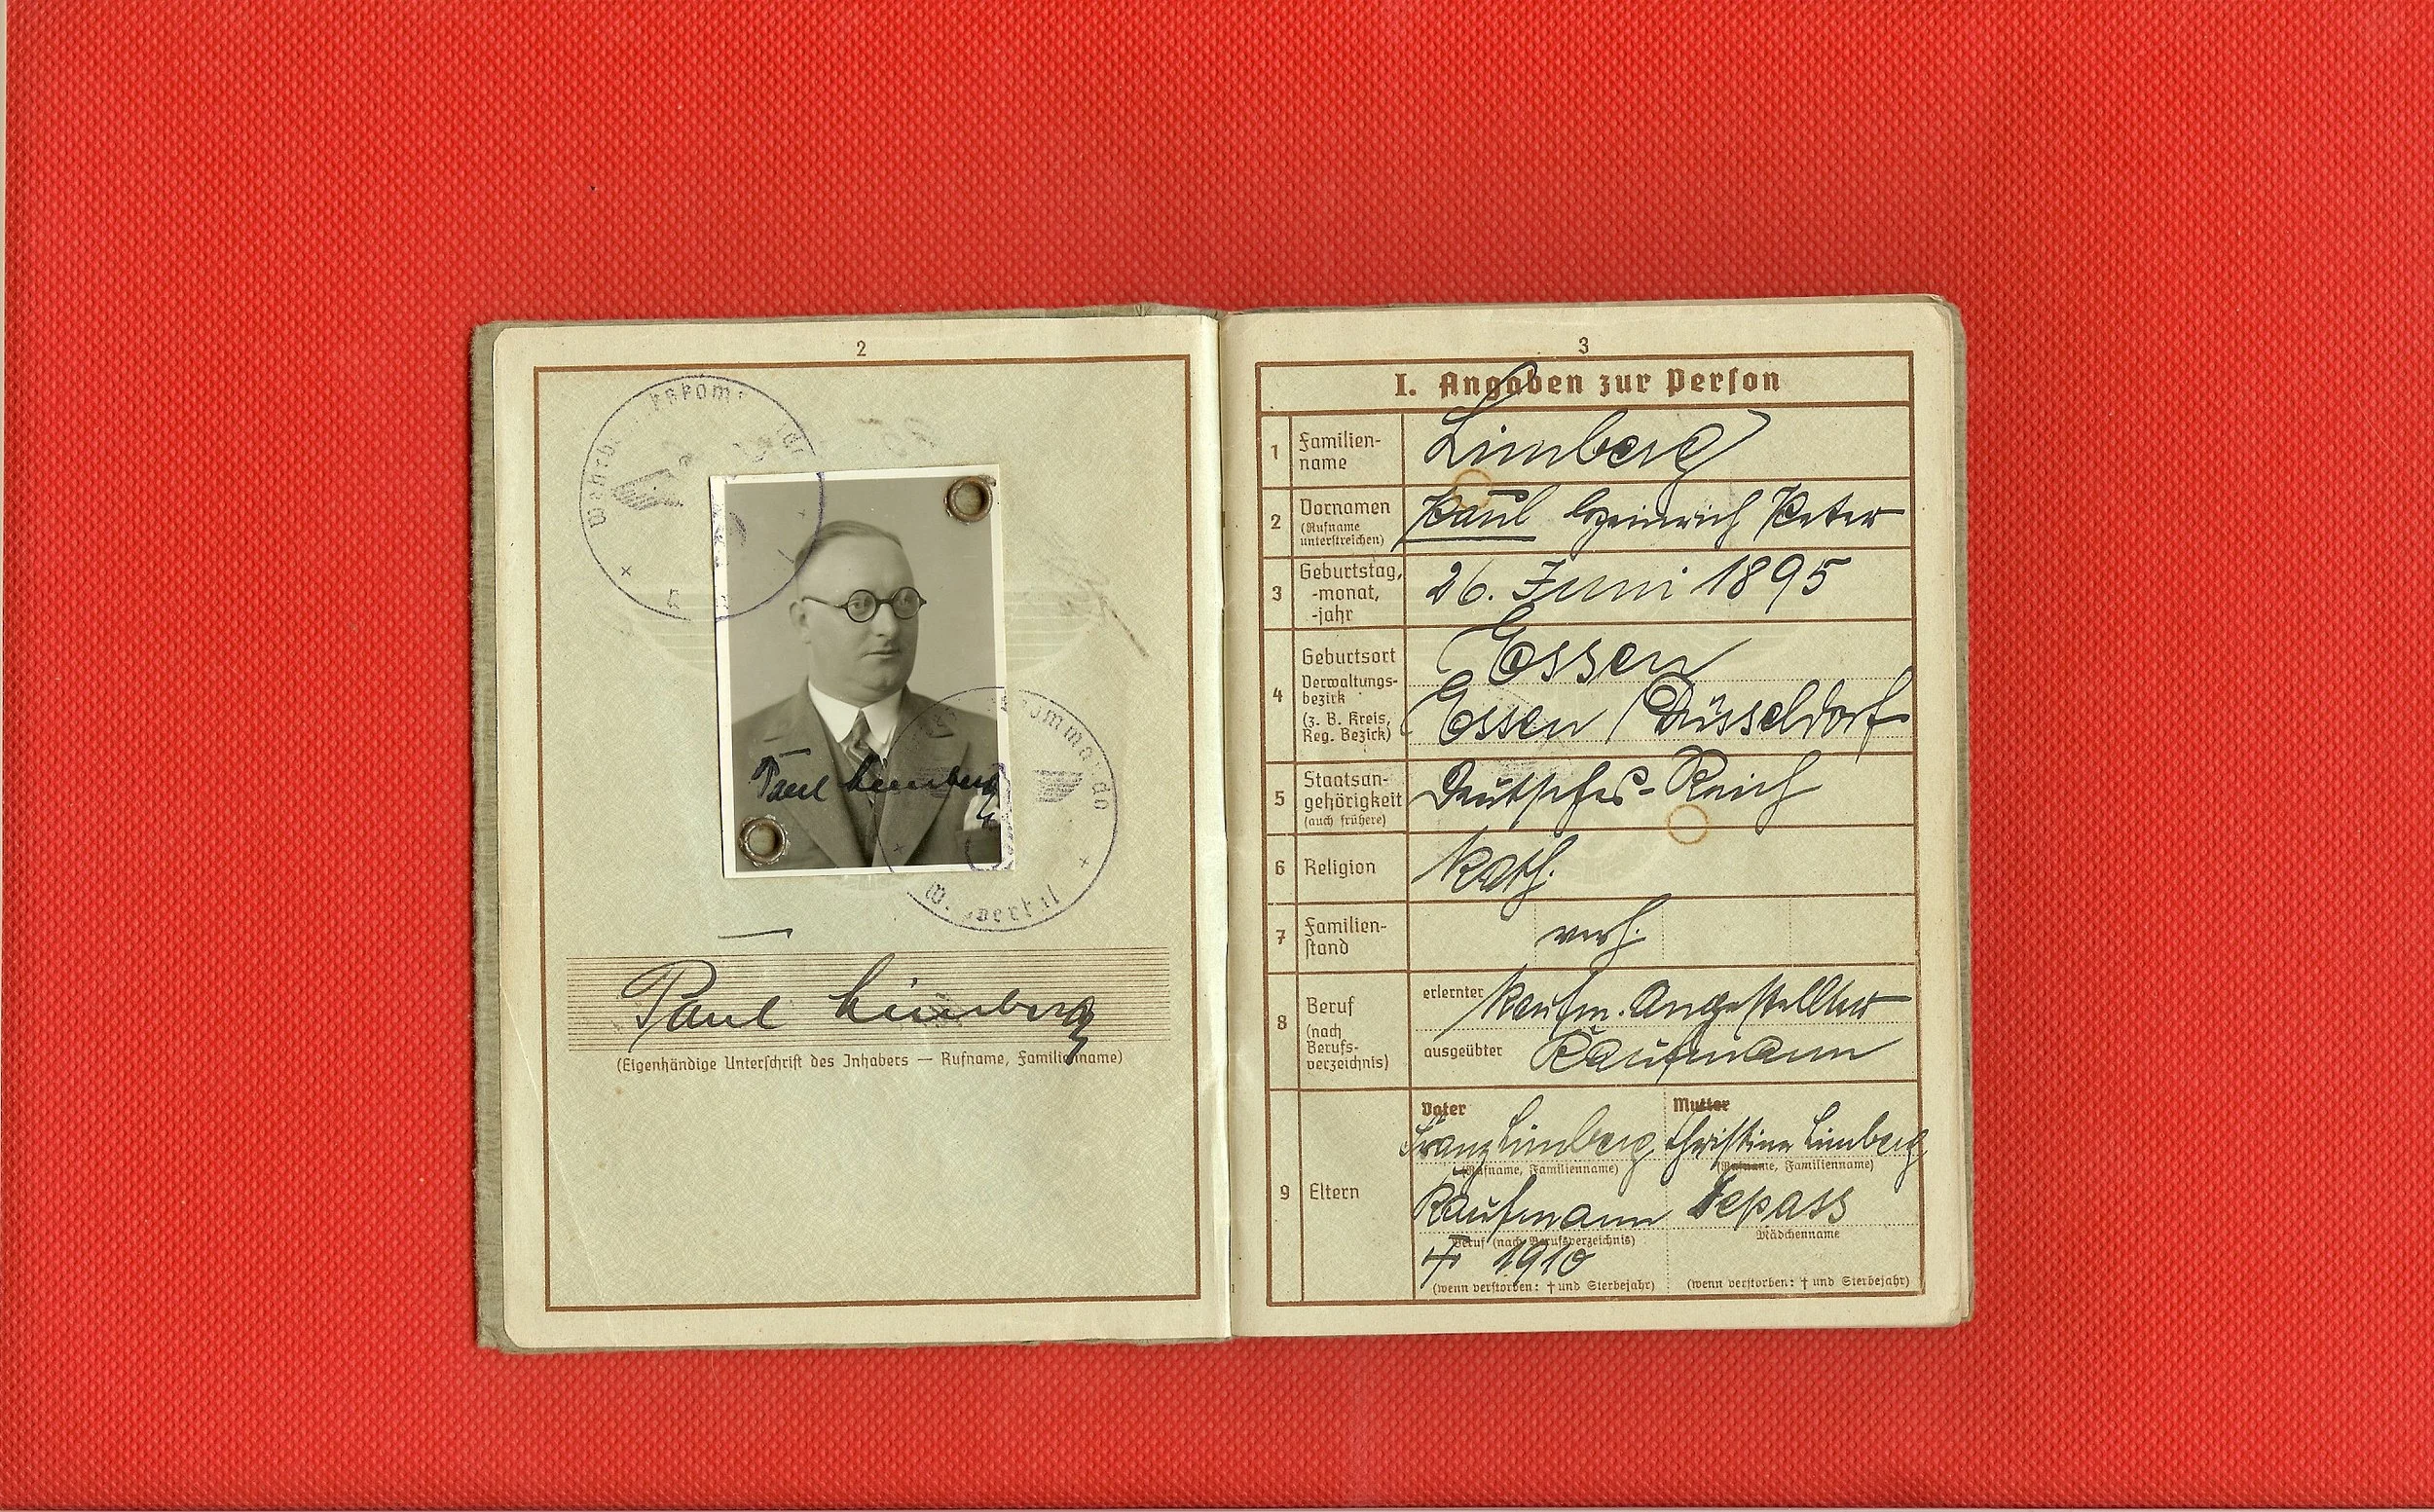 2
Paul Limberg
Paul Limberg
(Eigenhändige Unterschrift des Inhabers — Rufname, Familienname)
3
I. Angaben zur Person
1 Familien-
name
Limberg
2 Vornamen
(Rufname
unterstreichen)
Paul Heinrich Peter
3 Geburtstag,
-monat,
-jahr
26. Juni 1895
4 Geburtsort
Verwaltungs-
bezirk
(z. B. Kreis,
Reg. Bezirk)
Essen
Essen / Düsseldorf
5 Staatsan-
gehörigkeit
(auch frühere)
Deutsches-Reich
6 Religion
kath.
7 Familien-
stand
verh.
8 Beruf
(nach
Berufs-
verzeichnis)
erlernter kaufm. Angestellter
ausgeübter Kaufmann
9 Eltern
Vater
Franz Limberg
(Rufname, Familienname)
Kaufmann
Beruf (nach Berufsverzeichnis)
† 1910
(wenn verstorben: † und Sterbejahr)
Mutter
Christine Limberg
(Rufname, Familienname)
Tepass
Mädchenname
(wenn verstorben: † und Sterbejahr)